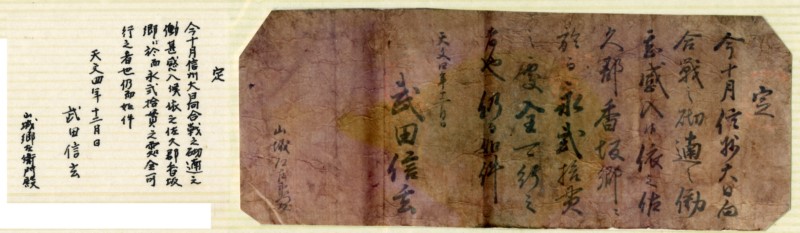 定
今十月信州大日向
合戦之砌適之働
甚感入候依之佐
久郡香坂郷ニ
於而永弐拾貫
之處全可行之
者也仍而如件
天文四年十二月日
武田信玄
定
今十月信州大日向合戦之砌適之
働甚感入候依之佐久郡香坂
郷ニ於而永弐拾貫之處全可
行之者也仍而如件
天文四年 十二月日
武田信玄
山城郷左衛門殿